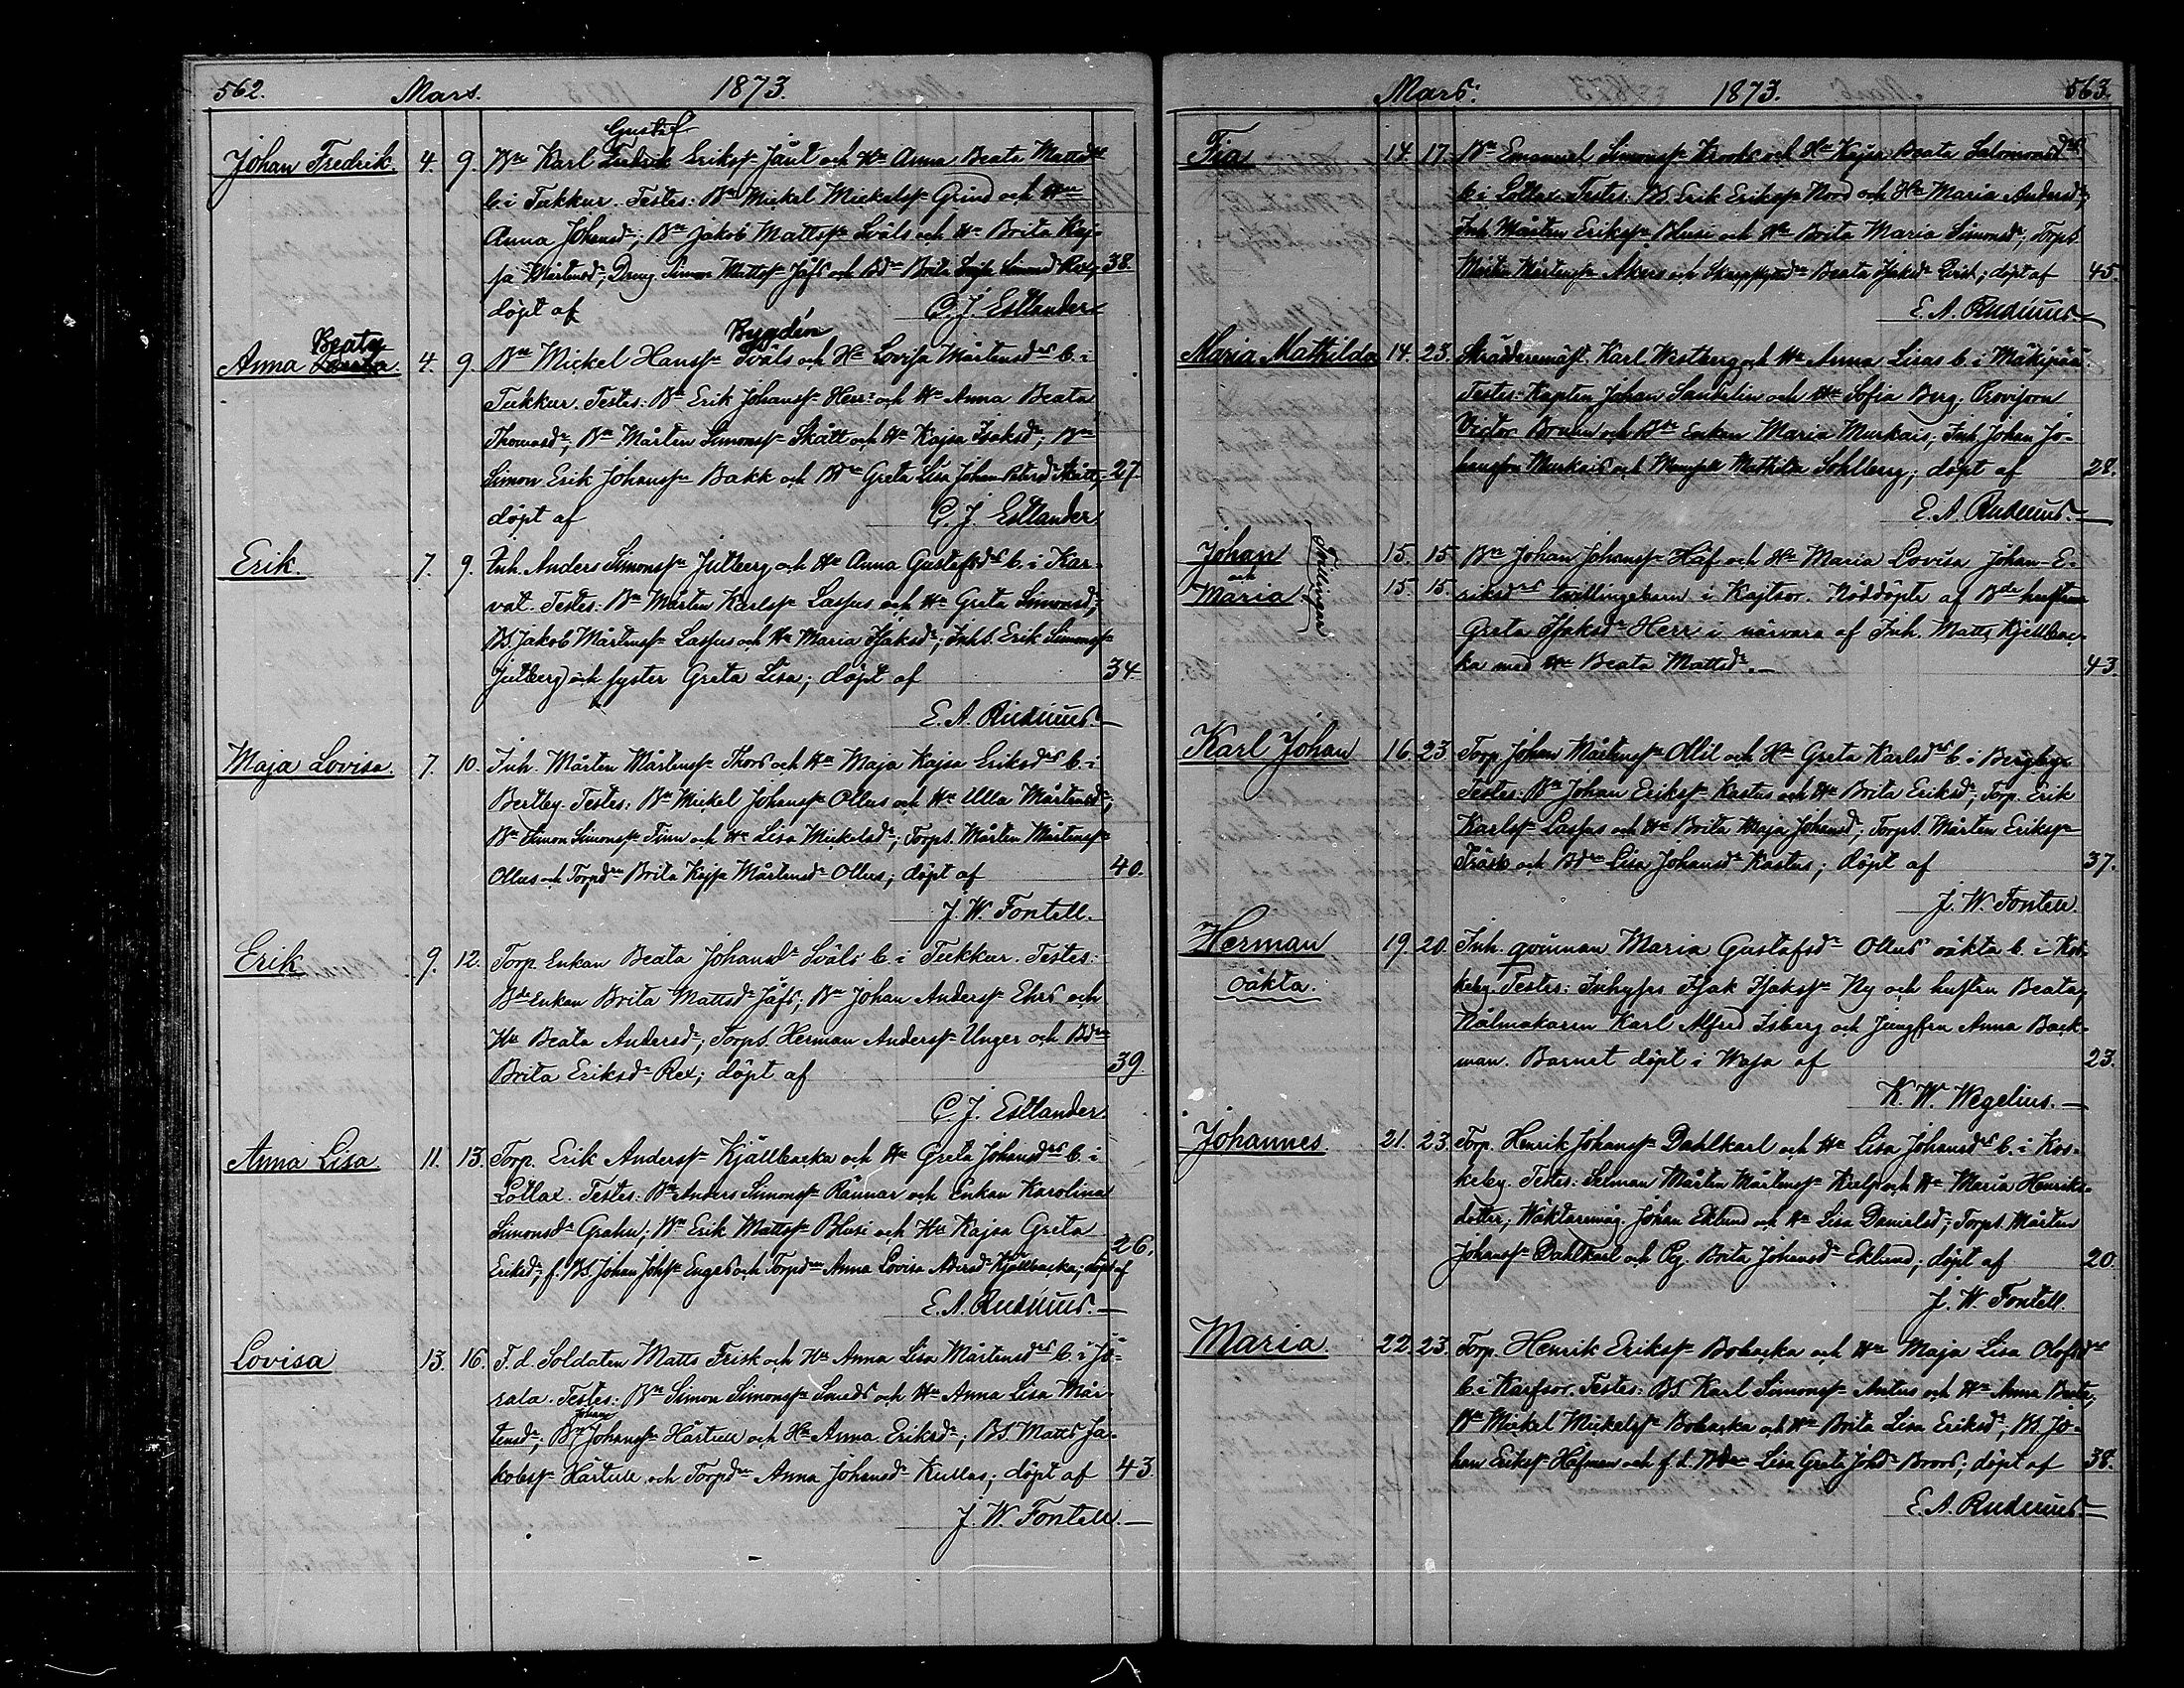 562. Mars. 1873.
Gustaf
Johan Fredrik. 4. 9. Bn Karl Fredrik Erikss:n Jånt och H:u Anna Beata Mattsd:rs
b. i Tukkur. Testes: Bn Mickel Mickelss:n Grind och H:u
Anna Johansd:r; Bn Jakob Mattss:n Svåls och H:u Brita Kaj-
sa Mårtensd:r; Dräng Simon Mattss:n Jåfs och Bd:n Brita Simonsd:r 38.
döpt af C. J. Estlander
Beata Bygdén
Anna 4. 9. Bn Mickel Hanss:n Svåls och H:u Lovisa Mårtensd:rs b. i
Tukkur. Testes: Bn Erik Johanss:n Herr och H:u Anna Beata
Thomasd:r; Bn Mårten Simonss:n Skått och H:u Kajsa Isaksd:r; Bn
Simon Erik Johanss:n Bakk och Bd:n Greta Lisa Johan Petersd:r Skått; 27.
döpt af C. J. Estlander
Erik. 7. 9. Inh. Anders Simonss:n Jutberg och H:u Anna Gustafsd:rs b. i Kar-
vat. Testes: Bn Mårten Karlss:n Laspus och H:u Greta Simonsd:r;
BS. Jakob Mårtenss:n Laspus och H:u Maria Isaksd:r; Inhs. Erik Simonss:n
Jutberg och syster Greta Lisa; döpt af 34.
E. A. Rudenius.
Maja Lovisa. 7. 10. Inh. Mårten Mårtenss:n Thors och H:u Maja Kajsa Eriksd:rs b. i
Bertby. Testes: Bn Mickel Johanss:n Ollus och H:u Ulla Mårtensd:r;
Bn Simon Simonss:n Finn och H:u Lisa Mickelsd:r; Torps. Mårten Mårtenss:n
Ollus och Torpd:n Brita Kajsa Mårtensd:r Ollus; döpt af 40.
J. W. Fontell.
Erik 9. 12. Torp. Enkan Beata Johansd:r Svåls b. i Tukkur. Testes:
Bde Enkan Brita Mattsd:r Jåfs; Bn Johan Anderss:n Ehrs och
H:u Beata Andersd:r; Torps. Herman Anderss:n Unger och Bd:n
Brita Eriksd:r Rex; döpt af 39.
C. J. Estlander
Anna Lisa 11. 13. Torp. Erik Anderss:n Kjällbacka och H:u Greta Johansd:rs b. i
Lotlax. Testes: Bn Anders Simonss:n Rännar och Enkan Karolina
Simonsd:r Grahn; Bn Erik Mattss:n Blusi och H:u Kajsa Greta
Eriksd:r; f. BS. Johan Johss:n Engels och Torpd:n Anna Lovisa Andersd:r Kjällbacka; döpt af 26.
E. A. Rudenius.
Lovisa 13. 16. F. d. Soldaten Matts Frisk och H:u Anna Lisa Mårtensd:rs b. i Jö-
rala. Testes: Bn Simon Simonss:n Smeds och H:u Anna Lisa Mår-
Johan
tensd:r; Bn Johanss:n Härtull och H:u Anna Eriksd:r; BS. Matts Ja-
kobss:n Härtull och Torpd:n Anna Johansd:r Kullas; döpt af 43
J. W. Fontell.
Mars. 1873. 563.
Fia 14. 17. Bn Emanuel Simonss:n Krooks och H:u Kajsa Beata Salomonsd:rs
b. i Lotlax. Testes: BS. Erik Erikss:n Nord och H:u Maria Andersd:r;
Inh. Mårten Erikss:n Blusi och H:u Brita Maria Simonsd:r; Torps.
Martin Mårtenss:n Åkers och Beata Isaksd:r; döpt af 45.
E. A. Rudenius.
Maria Mathilda 14. 23. Skräddaremäst. Karl Westberg och H:u Anna Lisas b. i Mäkipää.
Testes: Kapten Johan Sandelin och H:u Sofia Berg; Provisorn
Victor Boman och Enkan Maria Murkais; Inh. Johan Jo-
hansson Murkais och Mamsell Mathilda Sohlberg; döpt af 28.
E. A. Rudenius.
Johan Tvillingar 15. 15 Bn Johan Johanss:n Håf och H:u Maria Lovisa Johan-E-
och
Maria 15. 15. riksd:rs tvillingebarn i Kajtsor. Nöddöpte af Bde hustrun
Greta Isaksd:r Herr i närvaro af Inh. Matts Kjellbac-
ka med H:u Beata Mattsd:r. 43.
Karl Johan 16. 23 Torp. Johan Mårtenss:n Ollil och H:u Greta Karlsd:rs b. i Bergby
Testes: Bn Johan Erikss:n Kastus och H:u Brita Eriksd:r; Torp. Erik
Karlss:n Laspus och H:u Brita Maja Johansd:r; Torps. Mårten Erikss:n
Träsk och Bd:n Lisa Johansd:r Kastus; döpt af 37.
J. W. Fontell.
Herman 19. 20. Inh. qvinnan Maria Gustafsd:r Ollus' oäkta b. i Kos-
oäkta. keby. Testes: Inhyses Isak Isakss:n Ny och hustru Beata,
Nålmakaren Karl Alfred Isberg och Jungfru Anna Back-
man. Barnet döpt i Wasa af 23.
K. W. Wegelius.
Johannes 21. 23. Torp. Henrik Johanss:n Dahlkarl och H:u Lisa Johansd:rs b. i Kos-
keby. Testes: Mårten Mårtenss:n och H:u Maria Henriks-
dotter; Johan Eklund och H:u Lisa Danielsd:r; Torps. Mårten
Johanss:n Dahlkarl och Pig. Brita Johansd:r Eklund; döpt af 20.
J. W. Fontell.
Maria 22. 23. Torp. Henrik Erikss:n Bobacka och H:u Maja Lisa Olofsd:rs
b. i Karfsor. Testes: BS. Karl Simonss:n Antus och H:u Anna Beata;
Bn Mickel Mickelss:n Bobacka och H:u Brita Lisa Eriksd:r; BS. Jo-
han Erikss:n Håfman och f. d. Bd:n Lisa Greta Johsd:r Broors; döpt af 38.
E. A. Rudenius.